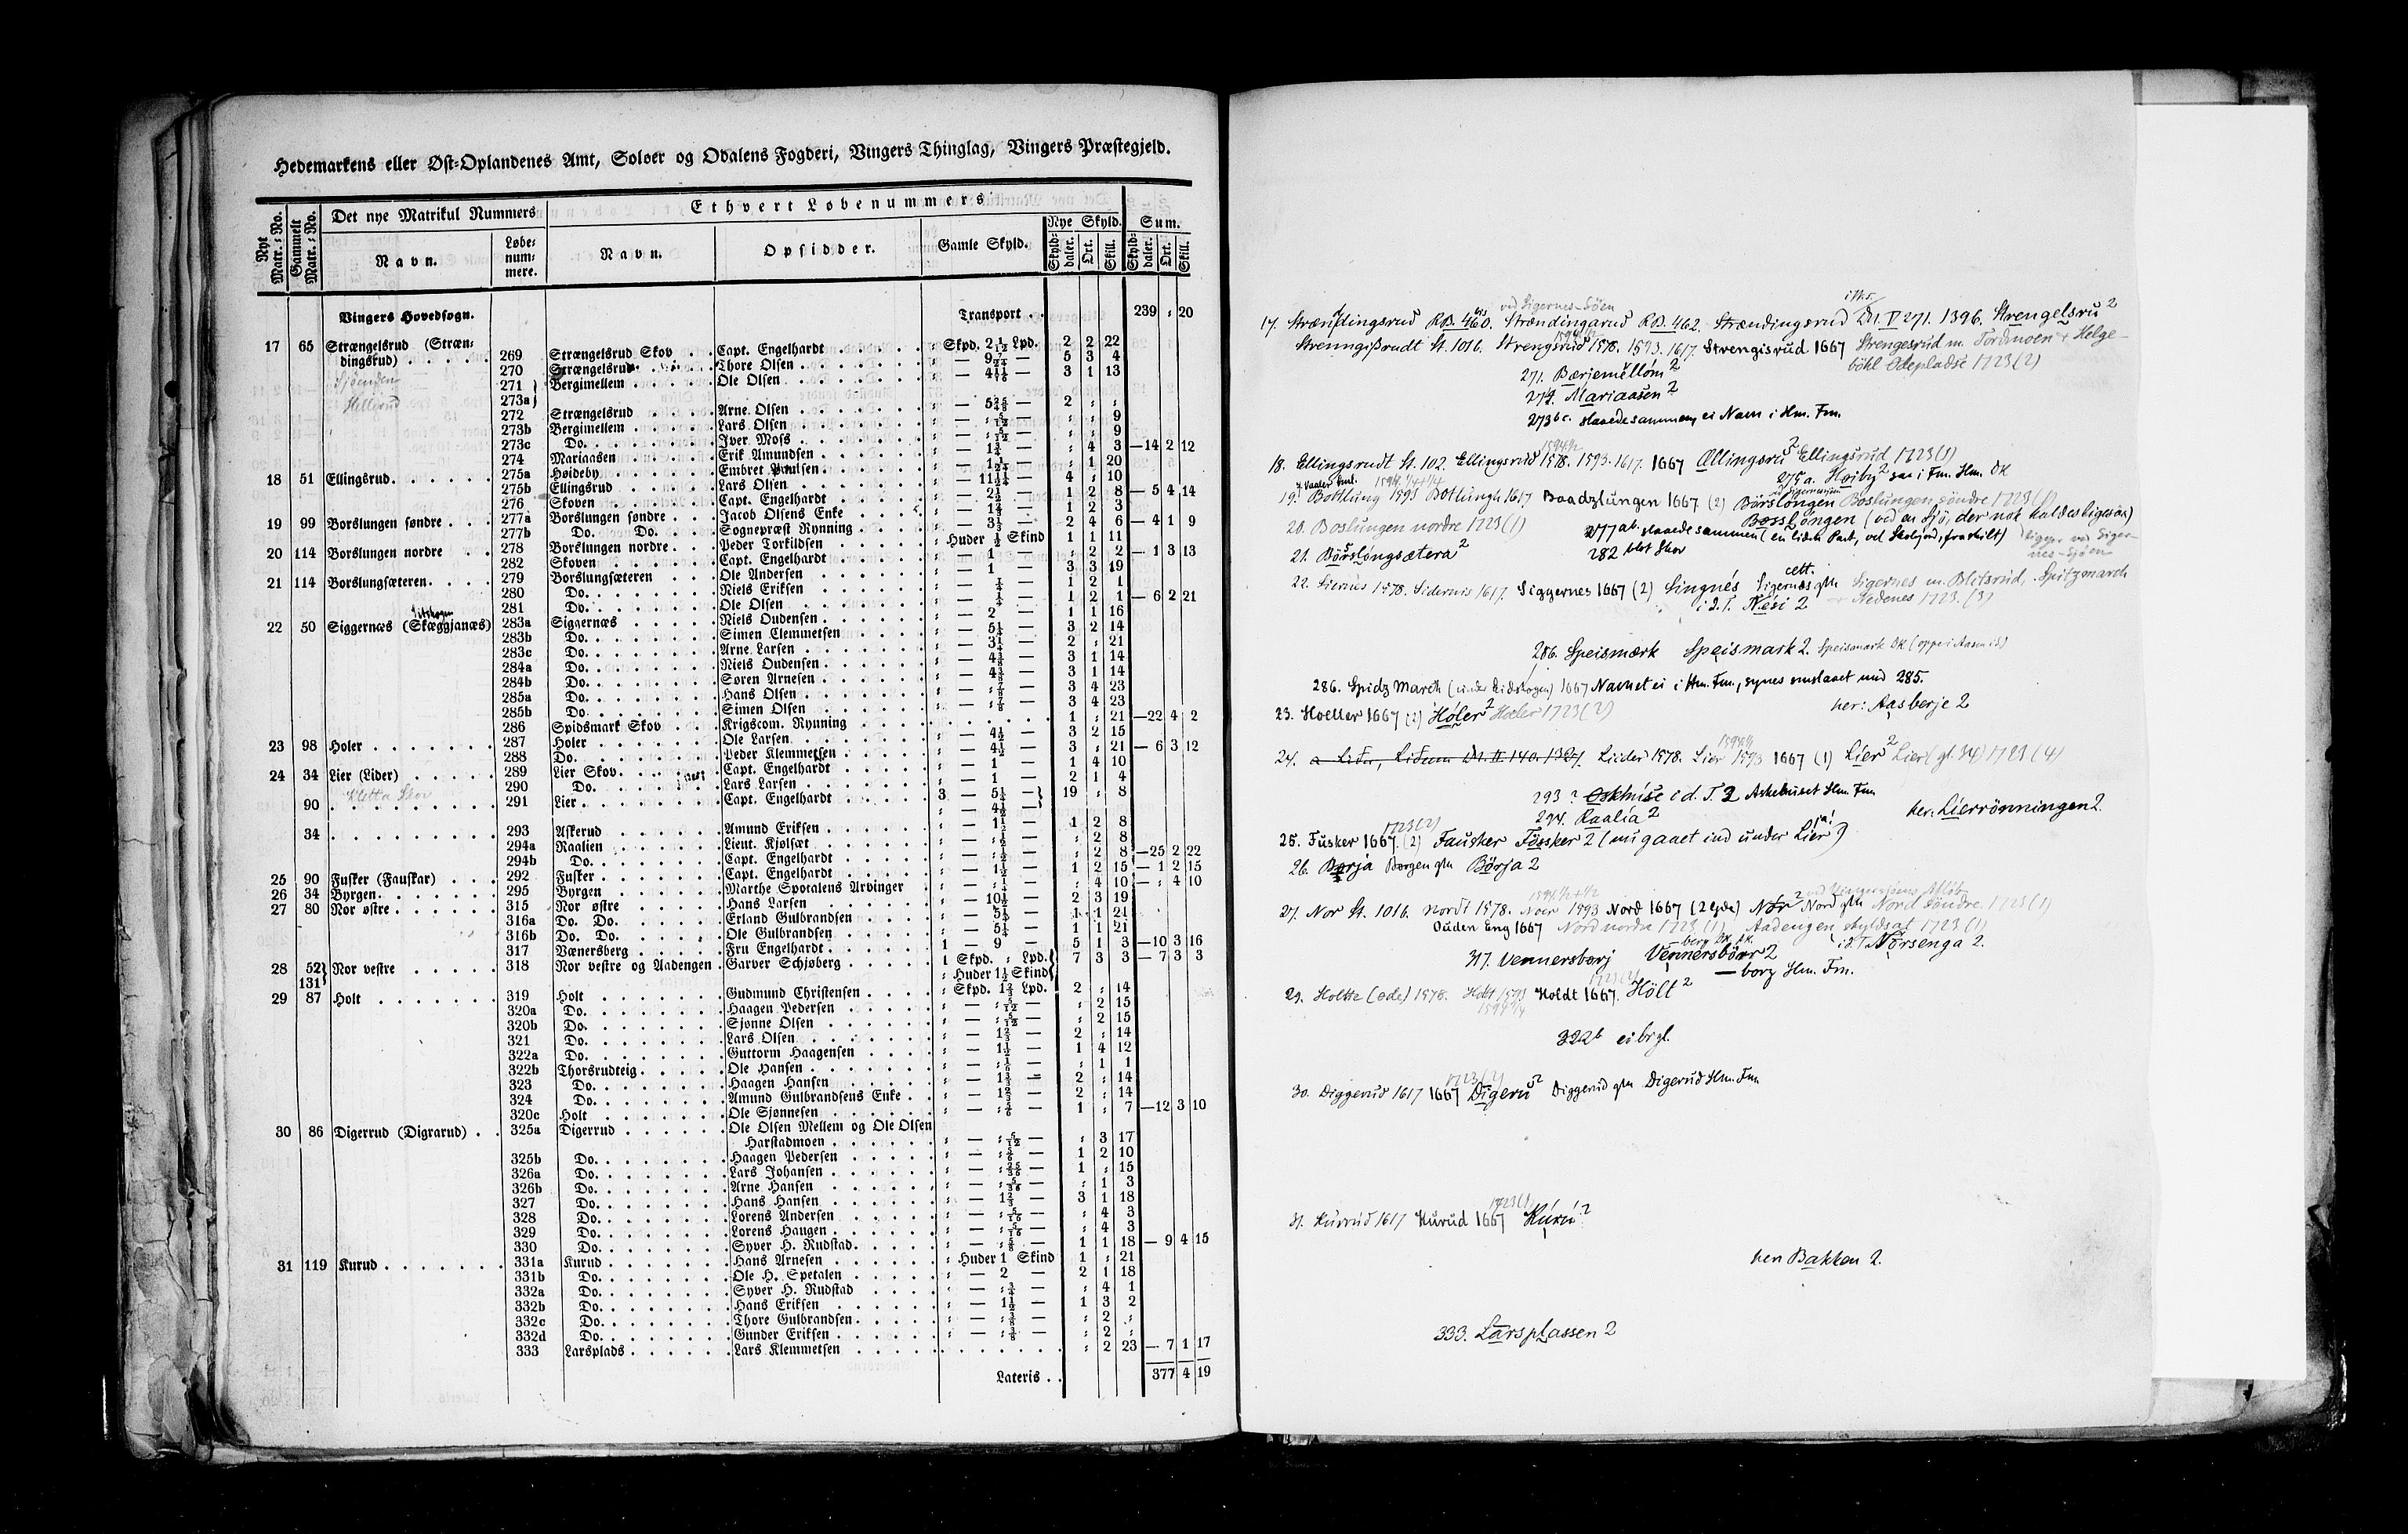 Hedemarkens eller Øst-Oplandenes Amt, Soløer og Odalens Fogderi, Vingers Thinglag, Vingers Præstegjeld.
Nyt Matr.-No. Gammelt Matr.-No. Det nye Matrikul Nummers Ethvert Løbenummers
Navn. Løbenummere. Navn. Opsidder. Gamle Skyld. Nye Skyld. Sum.
Skylddaler. Ort. Skill. Skylddaler. Ort. Skill.
Vingers Hovedsogn. Transport . . 239 : 20
17 65 Strængelsrud (Strændingsrud) 269 Strængelsrud Skov Capt. Engelhardt : Skpd. 2 1/12 Lpd. 2 2 22
270 Strængelsrud Thore Olsen 5 3 4
271 Bergimellem Ole Olsen 3 1 13
273a
272 Strængelsrud Arne Olsen 2 : :
273b Bergimellem Lars Olsen : : 9
273c Do. Iver Moss : : 9
274 Mariaasen Erik Amundsen : 4 3 —14 2 12
18 51 Ellingsrud 275a Høideby Embret Paulsen : 1 20
275b Ellingsrud Lars Olsen 4 : 10
276 Skoven Capt. Engelhardt 1 2 8 — 5 4 14
19 99 Borslungen søndre 277a Borslungen søndre Jacob Olsens Enke 1 2 3
277b Do. Do. Sognepræst Rynning 2 4 6 — 4 1 9
20 114 Borslungen nordre 278 Borslungen nordre Peder Torkildsen : Huder ½ Skind 1 1 11
282 Skoven Capt. Engelhardt — 1 — : 2 2 — 1 3 13
21 114 Borslungsæteren 279 Borslungsæteren Ole Andersen — 1 — 3 3 19
280 Do. Niels Eriksen 1 2 1
281 Do. Ole Olsen 1 2 1 — 6 2 21
22 50 Siggernæs (Skæggjanæs) 283a Siggernæs Niels Oudensen — 2 — 1 1 16
283b Do. Simen Clemmetsen 3 2 14
283c Do. Arne Larsen 2 : 21
284a Do. Niels Oudensen 3 1 14
284b Do. Søren Arnesen 3 1 14
285a Do. Hans Olsen 3 4 23
285b Do. Simen Olsen 3 4 23
286 Spidsmark Skov Krigscom. Rynning 1 : 21 —22 4 2
23 98 Holer 287 Holer Ole Larsen — 4½ — 3 2 15
288 Do. Peder Klemmetsen — 4½ — 3 : 21 — 6 3 12
24 34 Lier (Lider) 289 Lier Skov Capt. Engelhardt — 1 — 1 4 10
Kletta Skov 290 Do. Lars Larsen — 1 — 2 1 4
90 291 Lier Capt. Engelhardt 3 19 : 8
34 293 Askerud Amund Eriksen 1 2 8
294a Raalien Lieut. Kjølsæt : 2 8
294b Do. Capt. Engelhardt : 2 8 —25 2 22
25 90 Fusker (Fauskar) 292 Fusker Capt. Engelhardt 1 2 15 — 1 2 15
26 34 Byrgen 295 Byrgen Marthe Spotalens Arvinger : 4 10 — : 4 10
27 80 Nor østre 315 Nor østre Hans Larsen — 10½ — 2 3 19
316a Do. Do. Erland Gulbrandsen 1 1 21
316b Do. Do. Ole Gulbrandsen 1 1 21
317 Vænersberg Fru Engelhardt 1 — 9 — 5 1 3 —10 3 16
28 52 131 Nor vestre 318 Nor vestre og Aadengen Garver Schjøberg 1 Skpd. : Lpd. 7 3 3 — 7 3 3
: Huder 1½ Skind
29 87 Holt 319 Holt Gudmund Christensen : Skpd. 1⅔ Lpd. 2 : 14
320a Do. Haagen Pedersen : 2 15
320b Do. Sjønne Olsen : 2 15
321 Do. Lars Olsen 2 : 14
322a Do. Guttorm Haagensen 1 4 12
322b Thorsrudteig Ole Hansen : 1 1
323 Do. Haagen Hansen 2 : 14
324 Do. Amund Gulbrandsens Enke 2 : 14
320c Holt Ole Sjønnesen 1 : 7 —12 3 10
30 86 Digerrud (Digrarud) 325a Digerrud Ole Olsen Mellem og Ole Olsen
Harstadmoen : 3 17
325b Do. Haagen Pedersen 1 2 10
326a Do. Lars Johansen 1 : 15
326b Do. Arne Hansen : 1 3
327 Do. Hans Hansen 3 1 18
328 Do. Lorens Andersen : 4 3
329 Do. Lorens Haugen : 4 3
330 Do. Syver H. Rudstad 1 1 18 — 9 4 15
31 119 Kurud 331a Kurud Hans Arnesen : Huder 1 Skind 1 : 21
331b Do. Ole H. Spetalen — 2 — 2 1 18
332a Do. Syver H. Rudstad : 4 1
332b Do. Hans Eriksen 1 3 2
332c Do. Thore Gulbrandsen : 2 :
332d Do. Gunder Eriksen : 2 :
333 Larsplads Lars Klemmetsen : 2 23 — 7 1 17
Lateris . . 377 4 19
ved Sigernes-Søen
17. Strændingsrud RB. 460. Strændingarud RB. 462. Strændingsrud DN. V 271. 1396. Strengelsru 2
Strenngissrudt St. 1016. Strengsrud 1578. 1593. 1617. Strengisrud 1667 Strengesrud m. Tordmoen + Helge-
böhl Ödepladse 1723 (2)
271. Bærjemellom 2
274. Mariaasen 2
273 b c. slaaede sammen, ei Navn i Hm. Fm.
18. Ellingsrudt St. 102. Ellingsrud 1578. 1593. 1617. 1667 Ællingsru 2 Ellingsrud 1723 (1)
275 a. Høiby 2 saa i Fm. Hm. DK
19. Botlung 1593 Botlungh 1617 Baadzlungen 1667 (2) Börslongen Boslungen søndre 1723 (1)
20. Boslungen nordre 1723 (1) Bosslongen (ved en Sjö, der nok kaldes Sigesöa)
277 ab. slaaede sammen (en liden Part, vel Skoljord, fraskilt) ligger ved Siger-
nes-Sjöen
21. Börslongsætera 2 282 blot Skov
22. Siernes 1578. Sidernis 1617. Siggernes 1667 (2) Singnés Sigernæs gtn Sigernes m. Blitsrud, Spitzmarch
i d. T. Nési 2 Nedenes 1723. (3)
286. Speismærk Speismark 2. Speismark DK (oppe i Aasen)
286. Spidz March (under Eidskogen) 1667 Navnet ei i Hm. Fm., synes smslaaet med 285.
23. Hoeller 1667 (2) Höler 2 Holer 1723 (2) her: Aasberje 2
24. Liider 1578. Lier 1593 1667 (1) Lier 2 Lier (gl. 34) 1723 (4)
293? Oskhuse i d. T. 2 Askehuset Hm. Fm
294. Raalia 2 her: Lierrönningen 2.
25. Fusker 1667 (2) 1723 (2) Fausker Fössker 2 (nu gaaet ind under Lier?) ja!
26. Børja Borgen gtn Börja 2
27. Nor St. 1016. Nordt 1578. Noer 1593 Nord 1667 (2 Gde) Nor 2 Nord gtn Nord söndre 1723 (1)
Ouden Eng 1667 Nord nordre 1723 (1) Aadengen skyldsat 1723 (1)
317. Vennersborj Vennersbörr 2 i d. T. Nörsenga 2.
—borg Hm. Fm.
29. Holtte (øde) 1578. Holt 1593 Holdt 1667. Hölt 2
322 b ei brgl.
30. Diggerud 1617 1667 1723 (2) Digeru 2 Diggerud gtn Digerud Hm. Fm
31. Kurrud 1617 Kurud 1667 1723 (1) Kúru 2
her Bakken 2.
333. Larsplassen 2